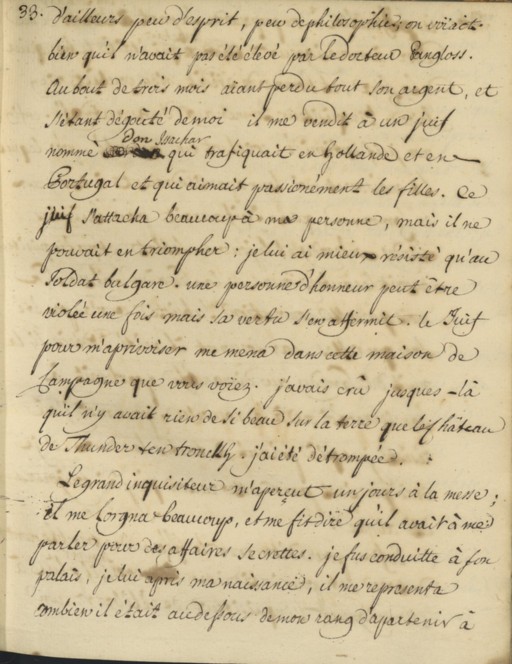 33. d'ailleurs peu d'esprit, peu de philosophie; on voiait
bien qu'il n'avait pas été élevé par le docteur Pangloss.
Au bout de trois mois aiant perdu tout son argent, et
s'étant dégoûté de moi il me vendit à un juif
Don Issachar
nommé qui trafiquait en Hollande et en
Portugal et qui aimait passionément les filles. Ce
juif s'attacha beaucoup à ma personne, mais il ne
pouvait en triompher : je lui ai mieux résisté qu'au
soldat bulgare. une personne d'honneur peut être
violée une fois mais sa vertu s'en affermit. le Juif
pour m'aprivoiser me mena dans cette maison de
Campagne que vous voiez. j'avais crû jusques-là
qu'il n'y avait rien de si beau sur la terre que le château
de Thunder ten tronckh. j'ai été détrompée.
Le grand inquisiteur m'aperçeut un jours à la messe;
il me lorgna beaucoup, et me fit dire qu'il avait à me
parler pour des affaires secrettes. je fus conduitte à son
palais, je lui apris ma naissance, il me representa
combien il était au dessous de mon rang d'apartenir à